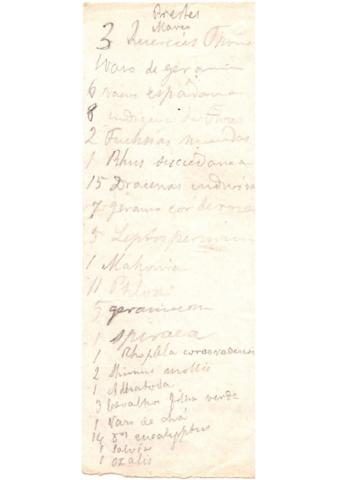 Prestes
Maria
3 Quercus
1 Vaso de geranium
6 vasos espadana
8 indigena da
2 Fuchsias
1 Rhus succedanea
15 Dracenas indivisa
7 geranio cor de rosa
5 Leptospermum
1 Mahonia
11 Phlox
5 geranium
1 spiraea
1 Rhopala corcovadensis
2 Shinus mollis
1 Adhatoda
3 Carvalho folha verde
1 Vaso de chá
14 eucalyptus
1 Salvia
1 Oxalis